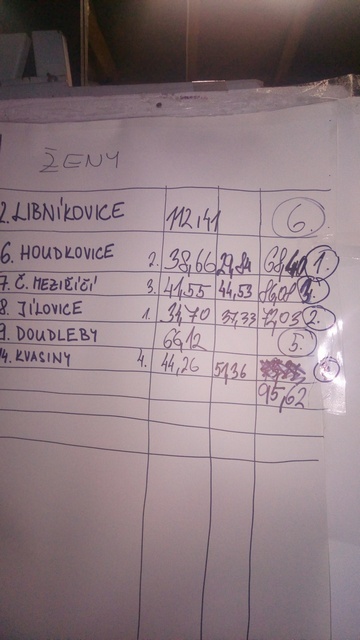 ŽENY
2. LIBNÍKOVICE 112,41 6.
6. HOUDKOVICE 2. 38,66 29,84 68,40 1.
7. Č. MEZIŘÍČÍ 3. 41,55 44,53 86,08 3.
8. JÍLOVICE 1. 34,70 37,33 72,03 2.
9. DOUDLEBY 66,12 5.
14. KVASINY 4. 44,26 51,36
95,62